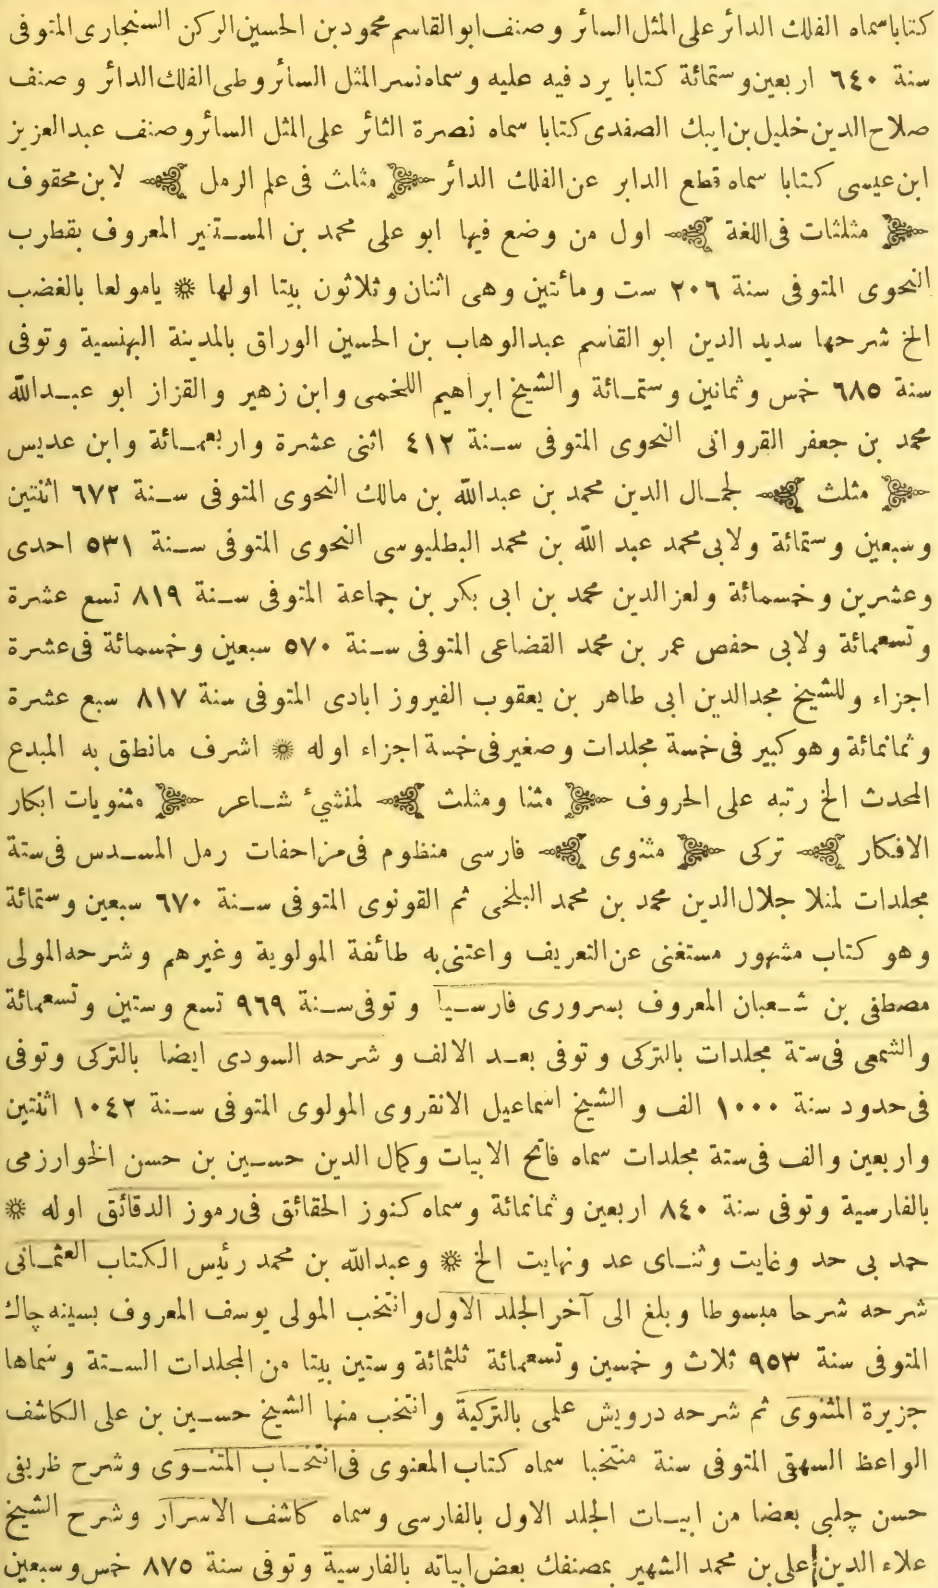 كتابا سماه الفلك الدائر على المثل السائر و صنف ابو القاسم محمود بن الحسين الركن السنجارى المتوفى
سنة ٦٤٠ اربعين و ستمائة كتابا يرد فيه عليه و سماه نسر المثل السائر و طى الفلك الدائر و صنف
صلاح الدين خليل بن ايبك الصفدى كتابا سماه نصرة الثائر على المثل السائر و صنف عبد العزيز
ابن عيسى كتابا سماه قطع الدابر عن الفلك الدائر مثلث فى علم الرمل لابن محقوف
مثلثات فى اللغة اول من وضع فيها ابو على محمد بن المستنير المعروف بقطرب
النحوى المتوفى سنة ٢٠٦ ست ومأتين وهى اثنان وثلاثون بيتا اولها ❊ يا مولعا بالغضب
الخ شرحها سديد الدين ابو القاسم عبد الوهاب بن الحسين الوراق بالمدينة البهنسية وتوفى
سنة ٦٨٥ خمس وثمانين وستمائة والشيخ ابراهيم اللخمى وابن زهير والقزاز ابو عبدالله
محمد بن جعفر القروانى النحوى المتوفى سنة ٤١٢ اثنى عشرة واربعمائة وابن عديس
مثلث لجمال الدين محمد بن عبدالله بن مالك النحوى المتوفى سنة ٦٧٢ اثنتين
وسبعين وستمائة ولابى محمد عبد الله بن محمد البطليوسى النحوى المتوفى سنة ٥٣١ احدى
وعشرين وخمسمائة ولعز الدين محمد بن ابى بكر بن جماعة المتوفى سنة ٨١٩ تسع عشرة
وتسعمائة ولابى حفص عمر بن محمد القضاعى المتوفى سنة ٥٧٠ سبعين وخمسمائة فى عشرة
اجزاء وللشيخ مجد الدين ابى طاهر بن يعقوب الفيروز ابادى المتوفى سنة ٨١٧ سبع عشرة
وثمانمائة وهو كبير فى خمسة مجلدات وصغير فى خمسة اجزاء اوله ❊ اشرف مانطق به المبدع
المحدث الخ رتبه على الحروف مثنا ومثلث لمنشئ شاعر مثنويات ابكار
الافكار تركى مثنوى فارسى منظوم فى مزاحفات رمل المسدس فى ستة
مجلدات لمنلا جلال الدين محمد بن محمد البلخى ثم القونوى المتوفى سنة ٦٧٠ سبعين وستمائة
وهو كتاب مشهور مستغنى عن التعريف واعتنى به طائفة المولوية وغيرهم وشرحه المولى
مصطفى بن شعبان المعروف بسرورى فارسيا وتوفى سنة ٩٦٩ تسع وستين وتسعمائة
والشمعى فى ستة مجلدات بالتركى وتوفى بعد الالف وشرحه السودى ايضا بالتركى وتوفى
فى حدود سنة ١٠٠٠ الف والشيخ اسماعيل الانقروى المولوى المتوفى سنة ١٠٤٢ اثنتين
واربعين والف فى ستة مجلدات سماه فاتح الابيات وكمال الدين حسين بن حسن الخوارزمى
بالفارسية وتوفى سنة ٨٤٠ اربعين وثمانمائة وسماه كنوز الحقائق فى رموز الدقائق اوله ❊
حمد بى حد وغايت وثناى عد ونهايت الخ ❊ وعبدالله بن محمد رئيس الكتاب العثمانى
شرحه شرحا مبسوطا وبلغ الى آخر الجلد الاول وانتخب المولى يوسف المعروف بسينه چاك
المتوفى سنة ٩٥٣ ثلاث وخمسين وتسعمائة ثلثمائة وستين بيتا من المجلدات الستة وسماها
جزيرة المثنوى ثم شرحه درويش علمى بالتركية وانتخب منها الشيخ حسين بن على الكاشف
الواعظ السهقى المتوفى سنة منتخبا سماه كتاب المعنوى فى انتخاب المثنوى وشرح ظريفى
حسن چلبى بعضا من ابيات الجلد الاول بالفارسى وسماه كاشف الاسرار وشرح الشيخ
علاء الدين على بن محمد الشهير بمصنفك بعض ابياته بالفارسية وتوفى سنة ٨٧٥ خمس وسبعين